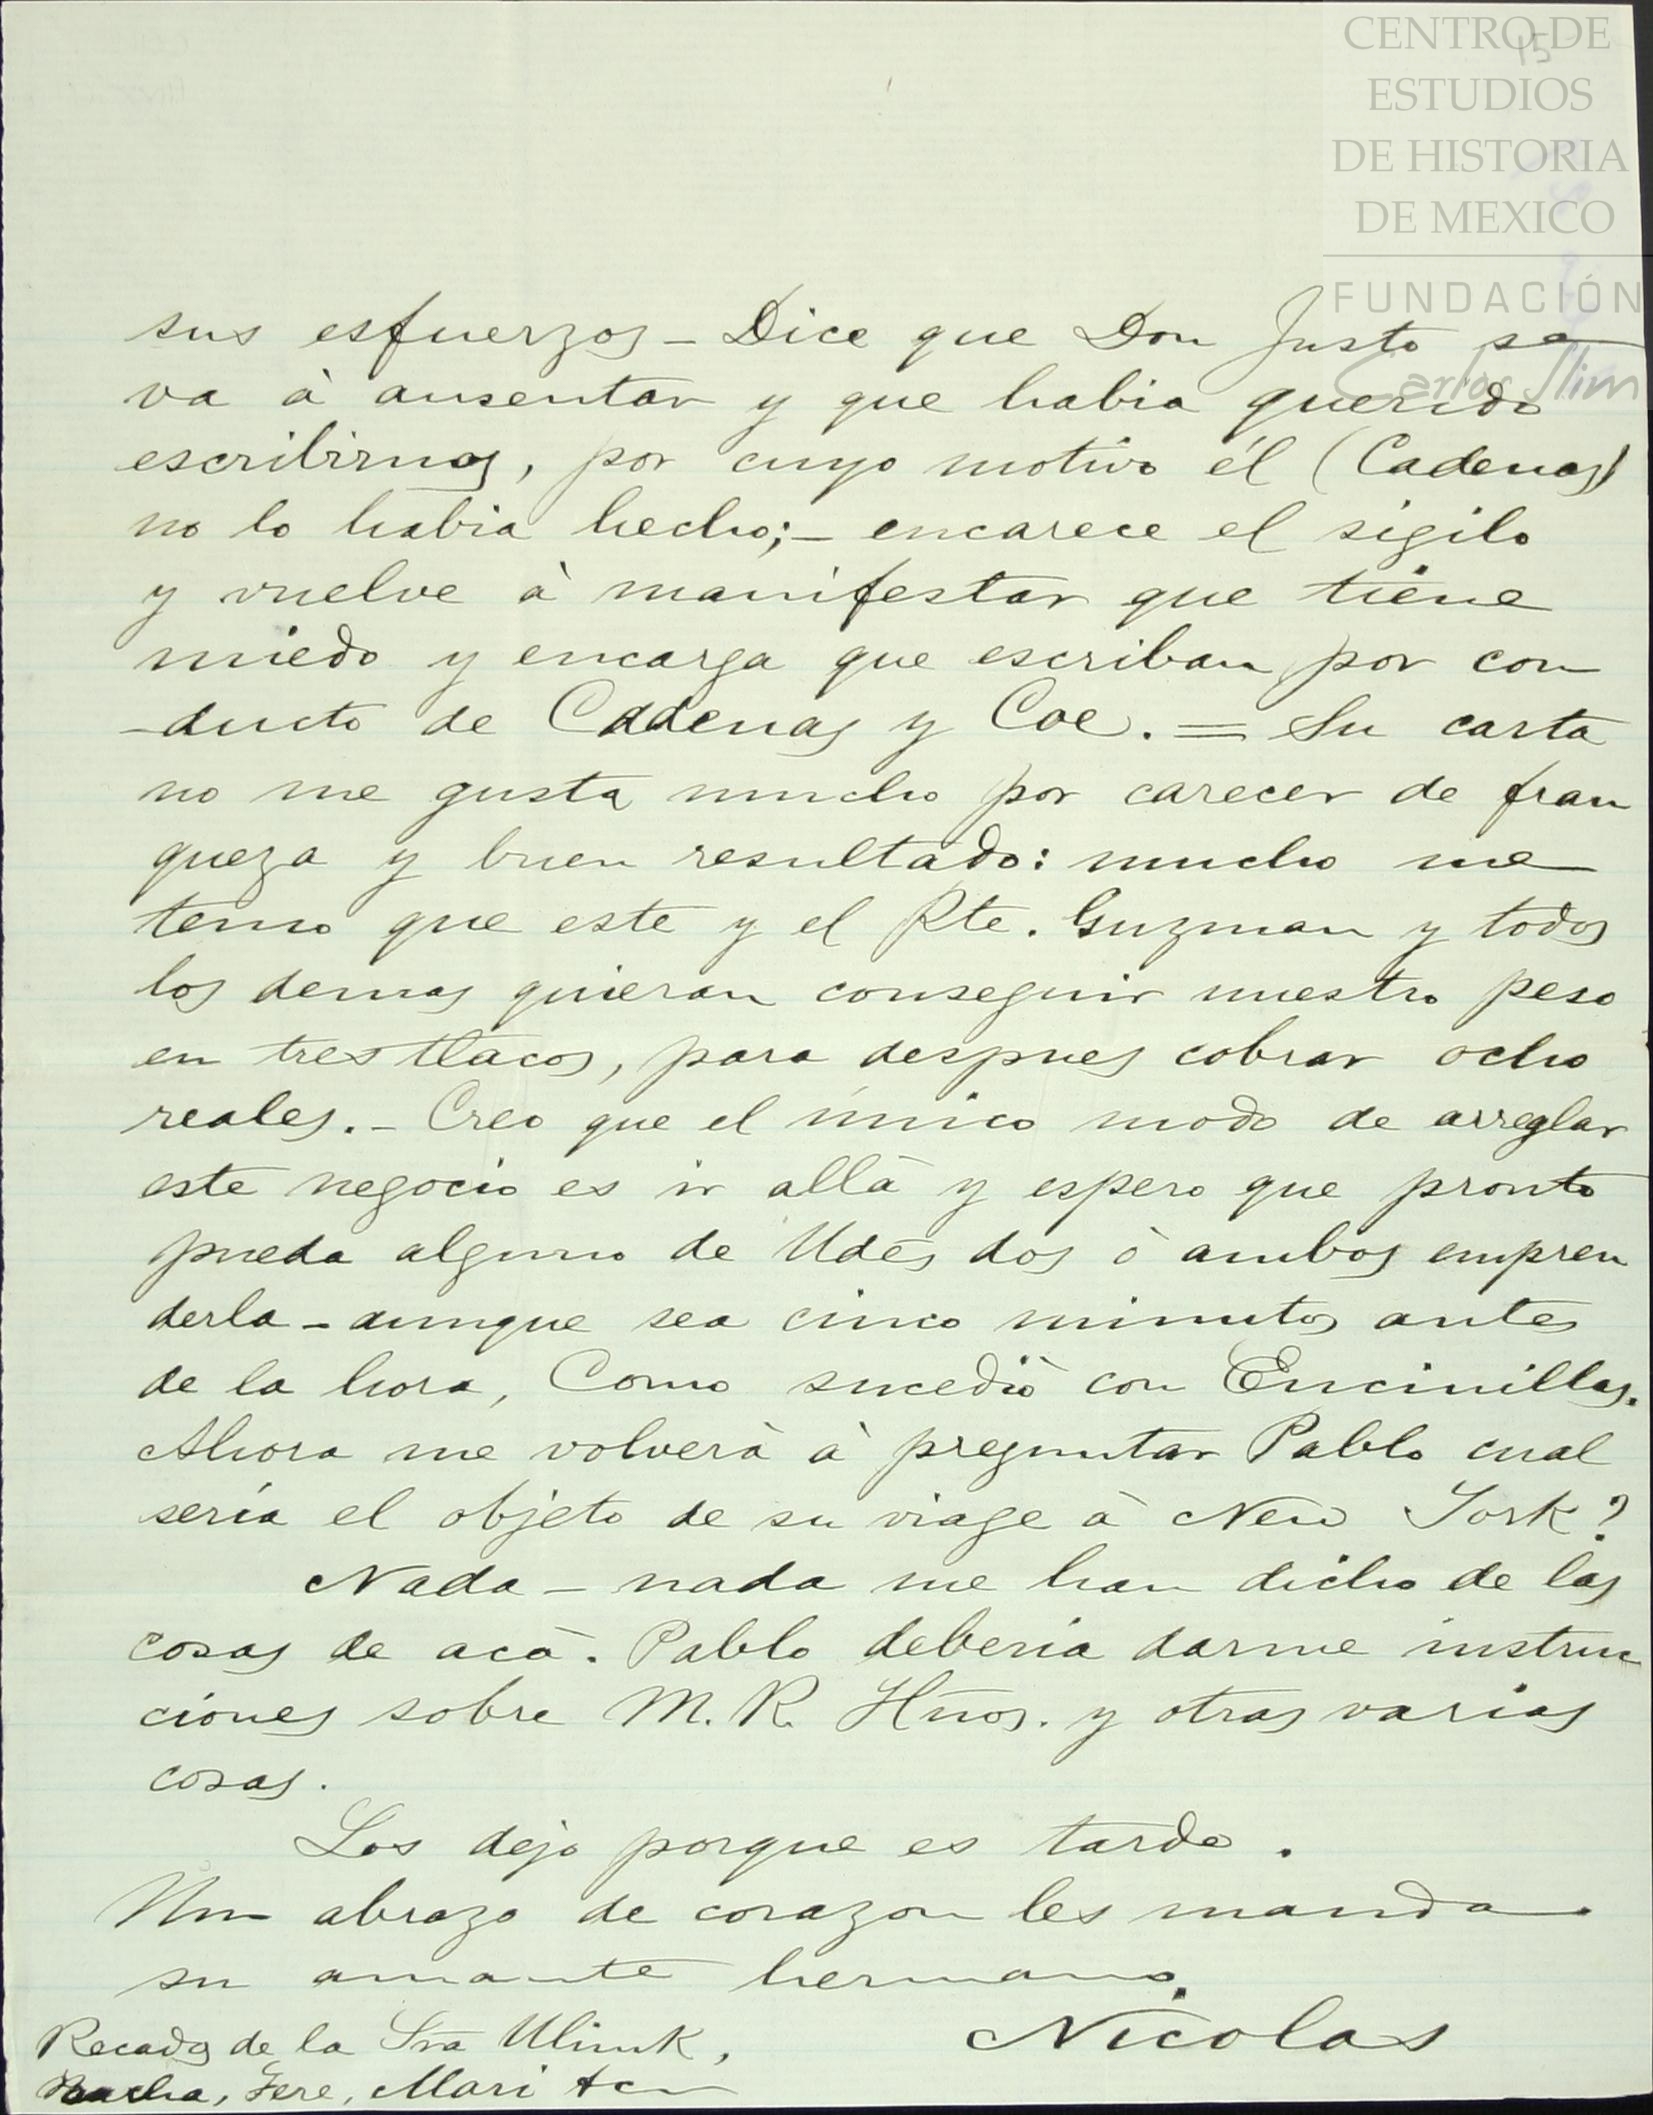 CENTRO DE
ESTUDIOS
DE HISTORIA
DE MEXICO
FUNDACIÓN
Carlos Slim
15
sus esfuerzos – Dice que Don Justo se
va à ausentar y que habia querido
escribirnos, por cuyo motivo él (Cadenas)
no lo habia hecho; – encarece el sigilo
y vuelve à manifestar que tiene
miedo y encarga que escriban por con
-ducto de Cadenas y Coe. = Su carta
no me gusta mucho por carecer de fran
queza y buen resultado: mucho me
temo que este y el Rte. Guzman y todos
los demas quieran conseguir nuestro peso
en tres tlacos, para despues cobrar ocho
reales. – Creo que el único modo de arreglar
este negocio es ir allà y espero que pronto
pueda alguno de Udes dos ò ambos empren
derla – aunque sea cinco minutos antes
de la hora, Como sucediò con Encinillas.
Ahora me volverà à preguntar Pablo cual
seria el objeto de su viage à New York?
Nada – nada me han dicho de las
cosas de acà. Pablo deberia darme instruc
ciones sobre M. R. Hnos. y otras varias
cosas.
Los dejo porque es tarde.
Un abrazo de corazon les manda
su amante hermano.
Nicolas
Recados de la Sra
Fere, Mari